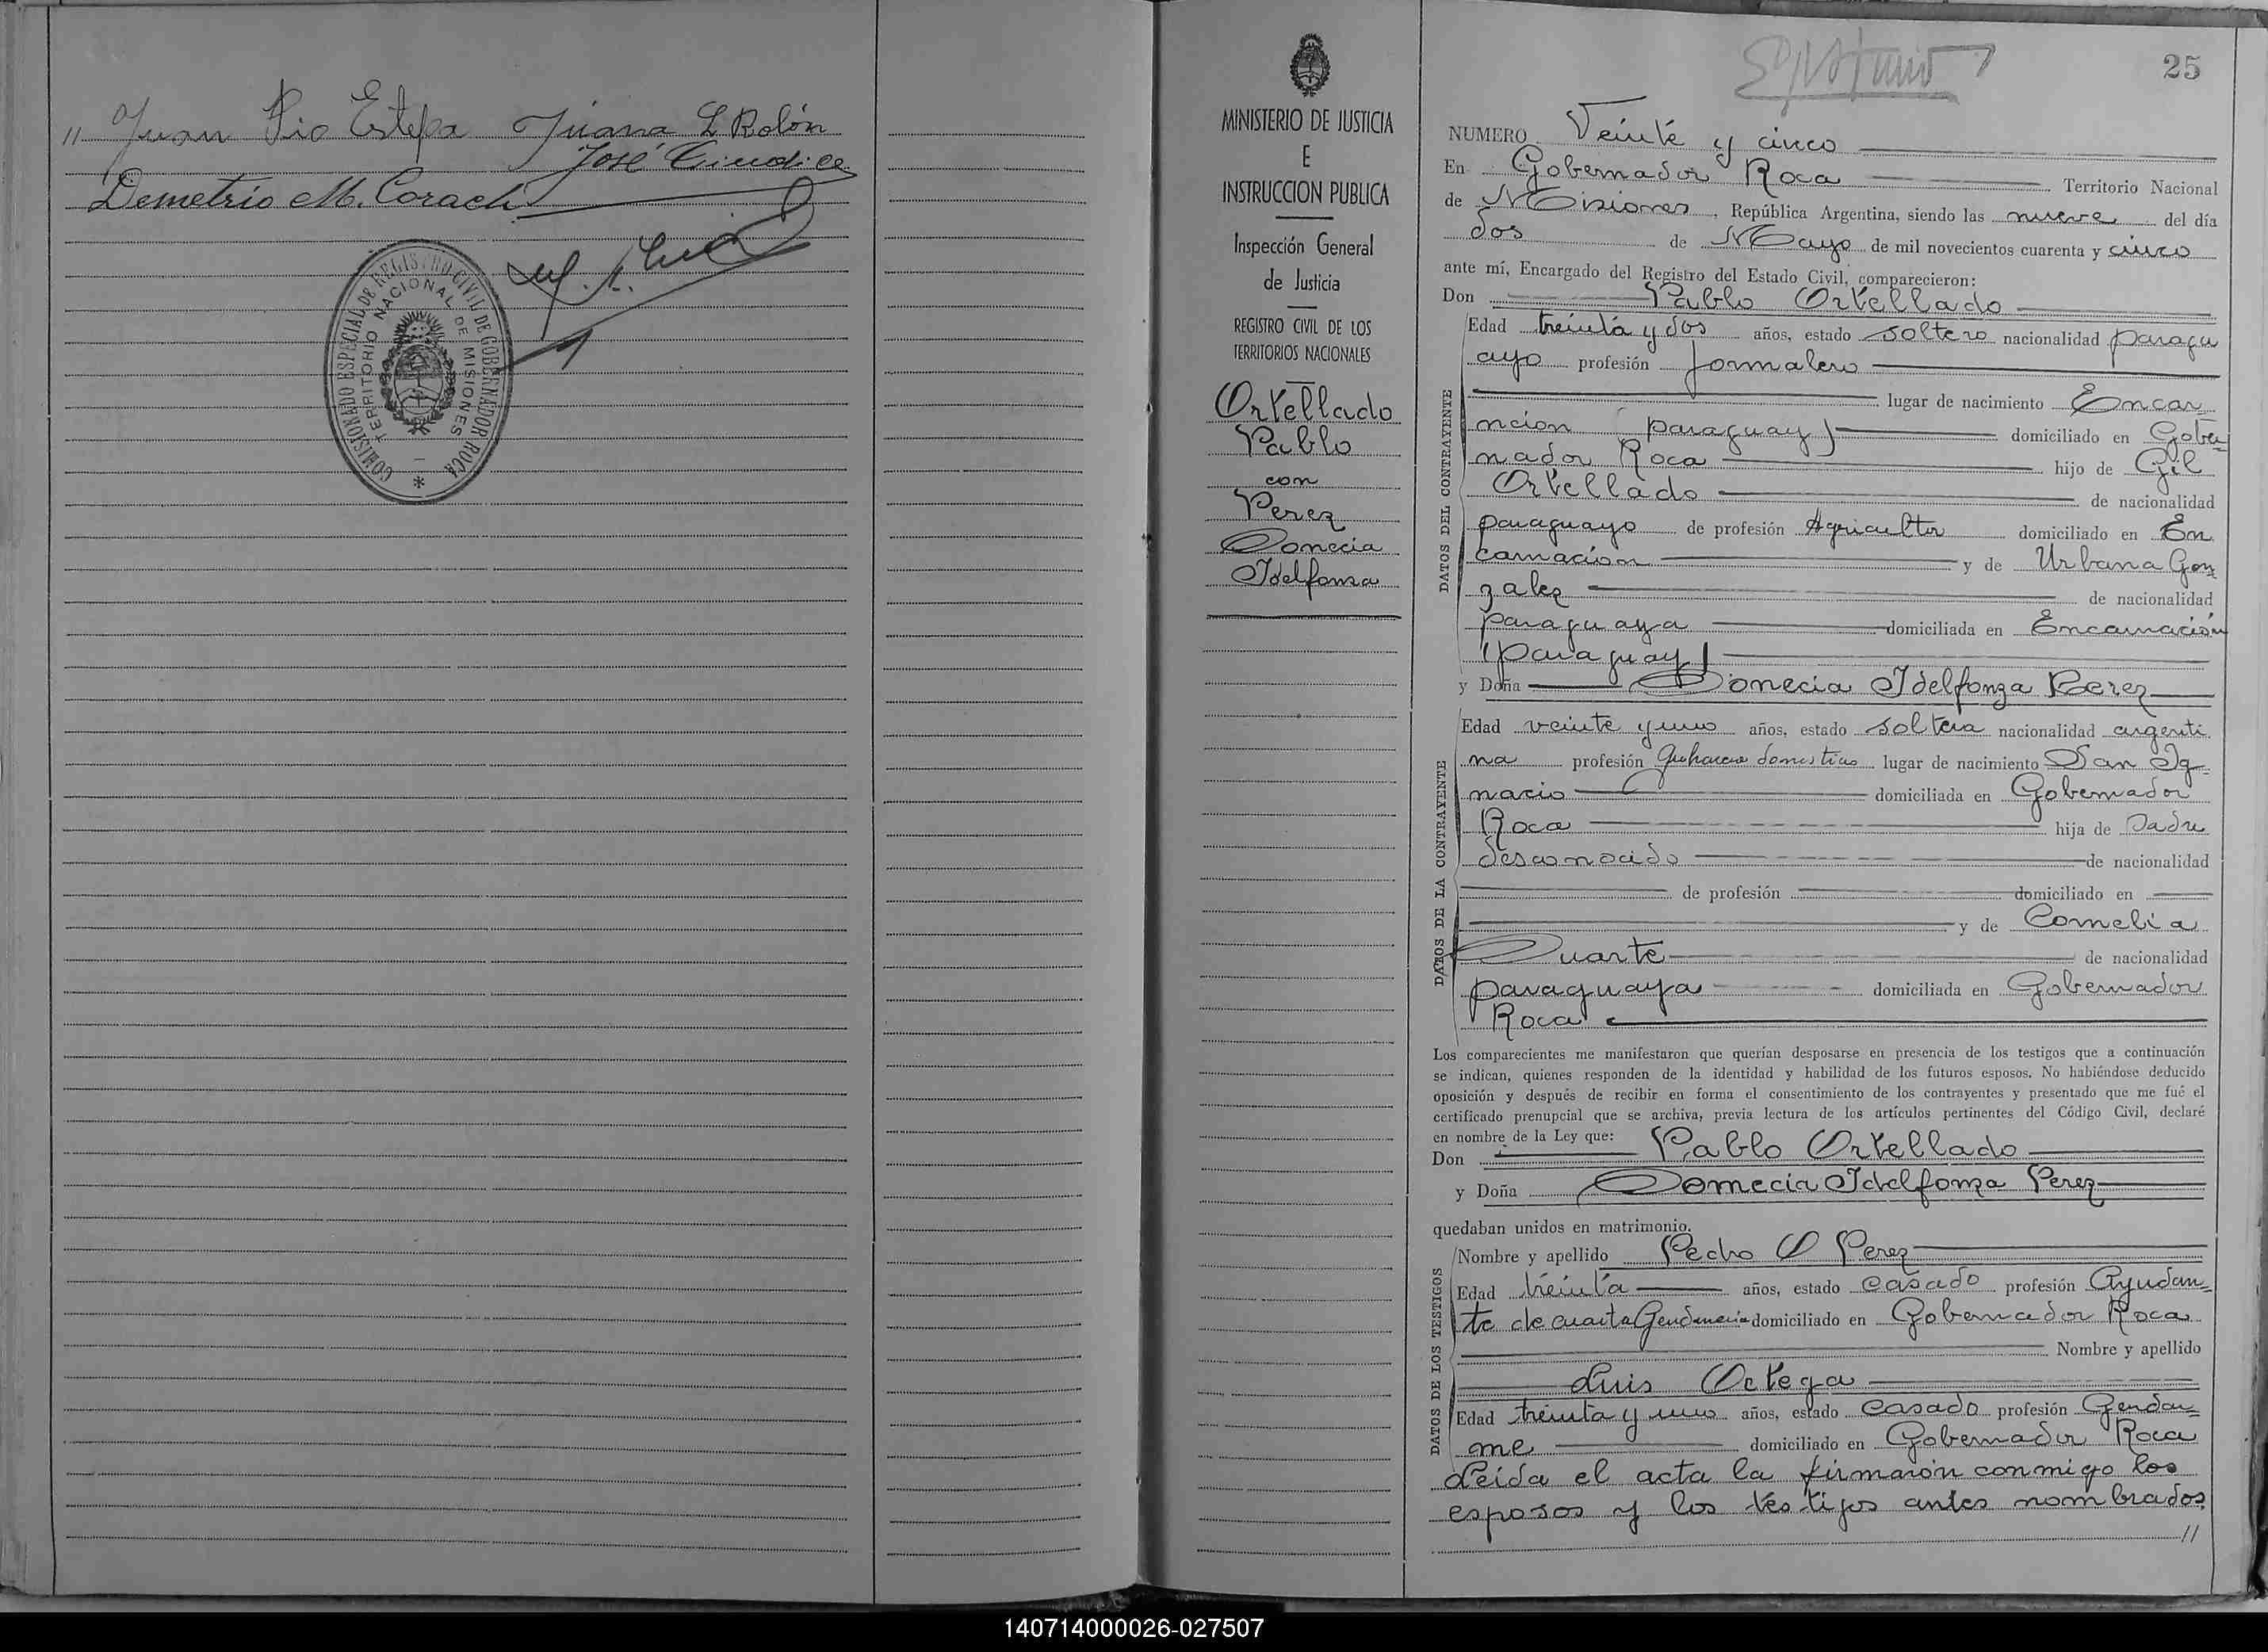 " Juan Pio Estepa Juana L Rolón
José
Demetrio M. Corach
COMISIONADO ESPECIAL DE REGISTRO CIVIL DE GOBERNADOR ROCA
TERRITORIO NACIONAL DE MISIONES
MINISTERIO DE JUSTICIA
E
INSTRUCCION PUBLICA
Inspección General
de Justicia
REGISTRO CIVIL DE LOS
TERRITORIOS NACIONALES
Ortellado
Pablo
con
Perez
Donecia
Idelfonsa
25
NUMERO Veinte y cinco
En Gobernador Roca Territorio Nacional
de Misiones, República Argentina, siendo las nueve del día
dos de Mayo de mil novecientos cuarenta y cinco
ante mí, Encargado del Registro del Estado Civil, comparecieron:
Don Pablo Ortellado
DATOS DEL CONTRAYENTE
Edad treinta y dos años, estado soltero nacionalidad paragu
ayo profesión jornalero
lugar de nacimiento Encar
nción (paraguay) domiciliado en Gober
nador Roca hijo de Gil
Ortellado de nacionalidad
paraguayo de profesión Agricultor domiciliado en En
carnación y de Urbana Gon
zalez de nacionalidad
paraguaya domiciliada en Encarnación
(paraguay)
y Doña Donecia Idelfonza Perez
DATOS DE LA CONTRAYENTE
Edad veinte y uno años, estado soltera nacionalidad argenti
na profesión quehaceres domesticos lugar de nacimiento San Ig
nacio domiciliada en Gobernador
Roca hija de Padre
desconocido de nacionalidad
de profesión domiciliado en
y de Cornelia
Duarte de nacionalidad
paraguaya domiciliada en Gobernador
Roca
Los comparecientes me manifestaron que querían desposarse en presencia de los testigos que a continuación
se indican, quienes responden de la identidad y habilidad de los futuros esposos. No habiéndose deducido
oposición y después de recibir en forma el consentimiento de los contrayentes y presentado que me fué el
certificado prenupcial que se archiva, previa lectura de los artículos pertinentes del Código Civil, declaré
en nombre de la Ley que:
Don Pablo Ortellado
y Doña Donecia Idelfonza Perez
quedaban unidos en matrimonio.
DATOS DE LOS TESTIGOS
Nombre y apellido Pedro O Perez
Edad treinta años, estado casado profesión Ayudan
te de cuarta Gendarmeria domiciliado en Gobernador Roca
Nombre y apellido
Luis Ortega
Edad treinta y uno años, estado casado profesión Gendar
me domiciliado en Gobernador Roca
Leida el acta la firmarón conmigo los
esposos y los testigos antes nombrados
//
140714000026-027507